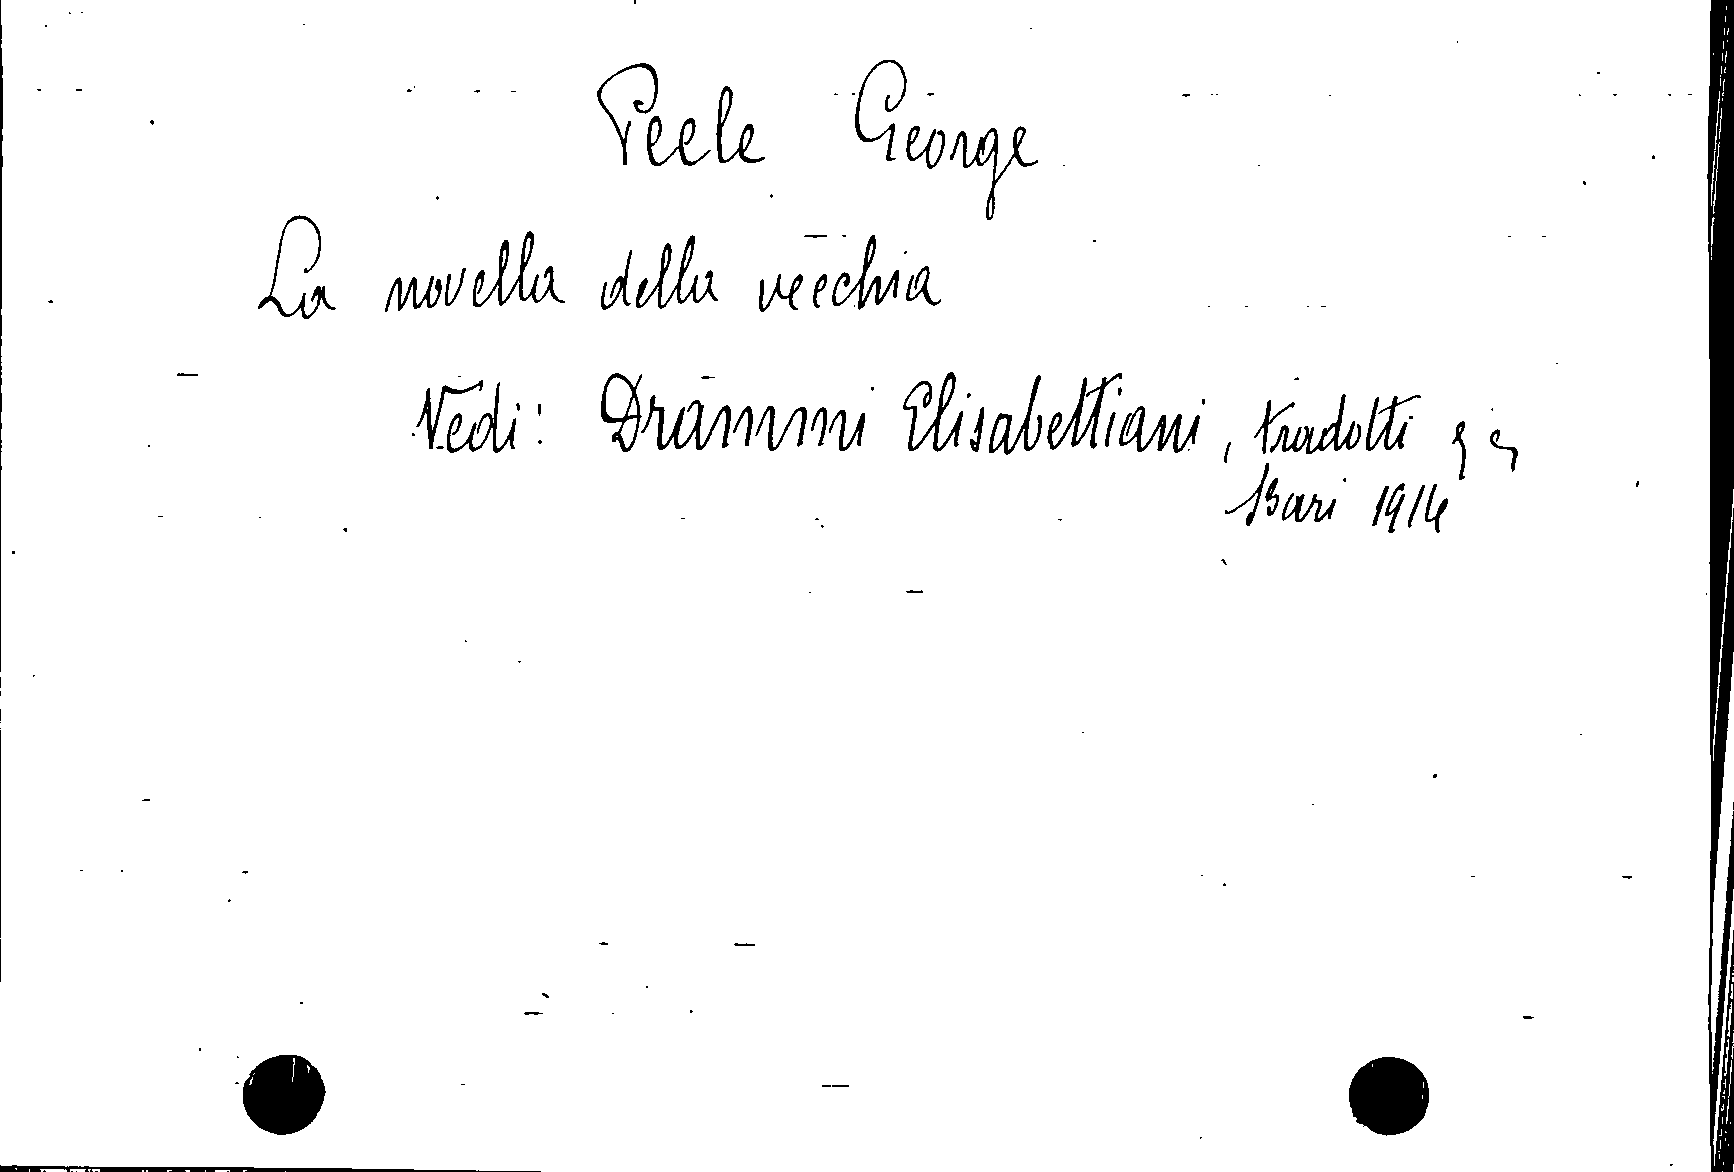 Peele George
La novella della vecchia
Vedi: Drammi Elisabettiani, tradotti
Bari 1914